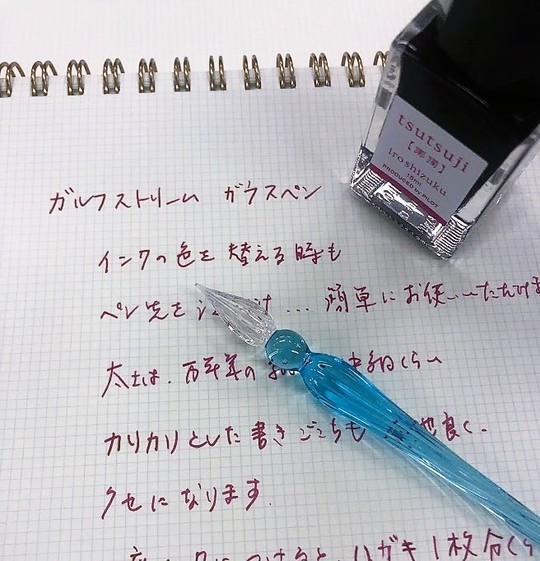 tsutsuji
【躑躅】
iroshizuku
15ml
PRODUCED by PILOT
ガルフストリーム ガラスペン
インクの色を替える時も
ペン先を … 簡単にお使いいただけま
太さは、万年筆の 中細くらい
カリカリとした書きごこちも 地良く、
クセになります。
ハガキ1枚分くら